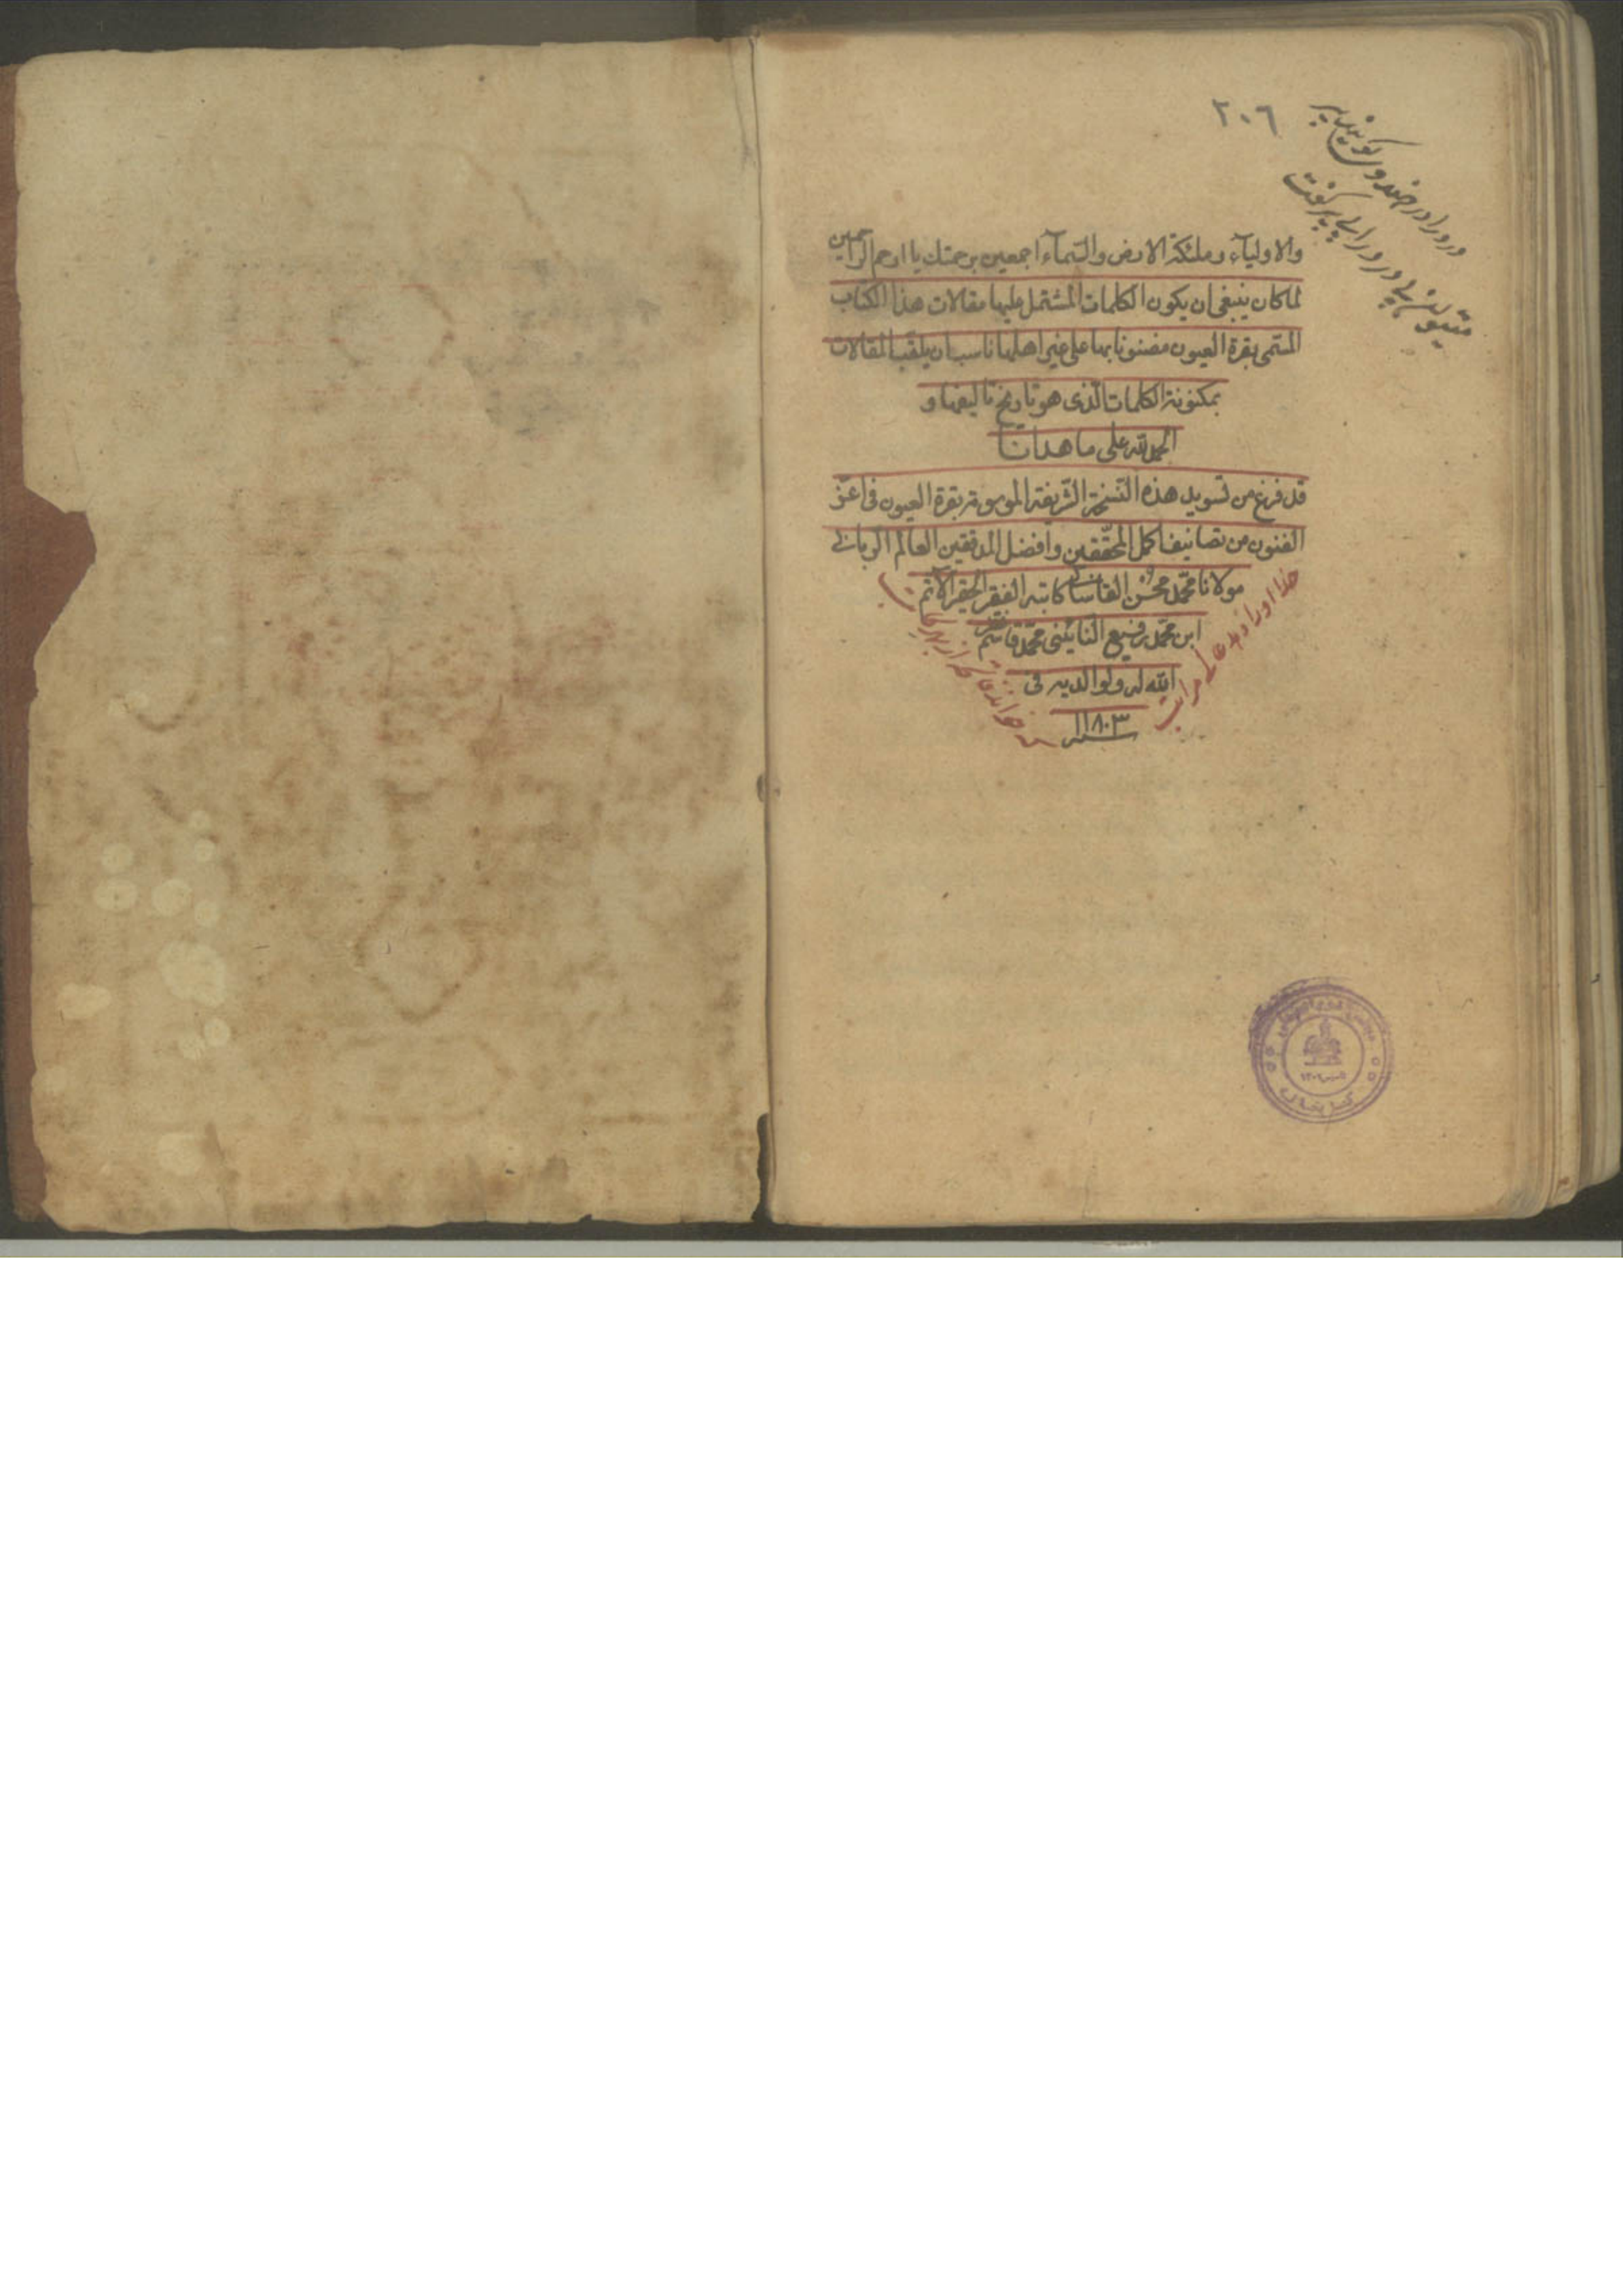 ٢٠٦
والاولیآء وملئكة الارض والسّمآء اجمعین برحمتك یا ارحم الراحمین
لما كان ینبغی ان یكون الكلمات المشتمل علیها مقالات هذا الكتاب
المسمّی بقرة العیون مضنونا بها علی غیر اهلها ناسب ان یلقب المقالات
بمكنونة الكلمات الّذی هو تاریخ تالیفها و
الحمد لله علی ما هدانا
قد فرغ من تسوید هذه النّسخة الشّریفة الموسومة بقرة العیون فی اعزّ
الفنون من تصانیف اكمل المحقّقین وافضل المدققین العالم الربانی
مولانا محمّد محسن القاسانی كاتبه الفقیر الحقیر الآثم
ابن محمّد رفیع النائینی محمّد قاسم غفر
الله له ولوالدیه فی
سنه ١١٨٠٣
كتابخانه